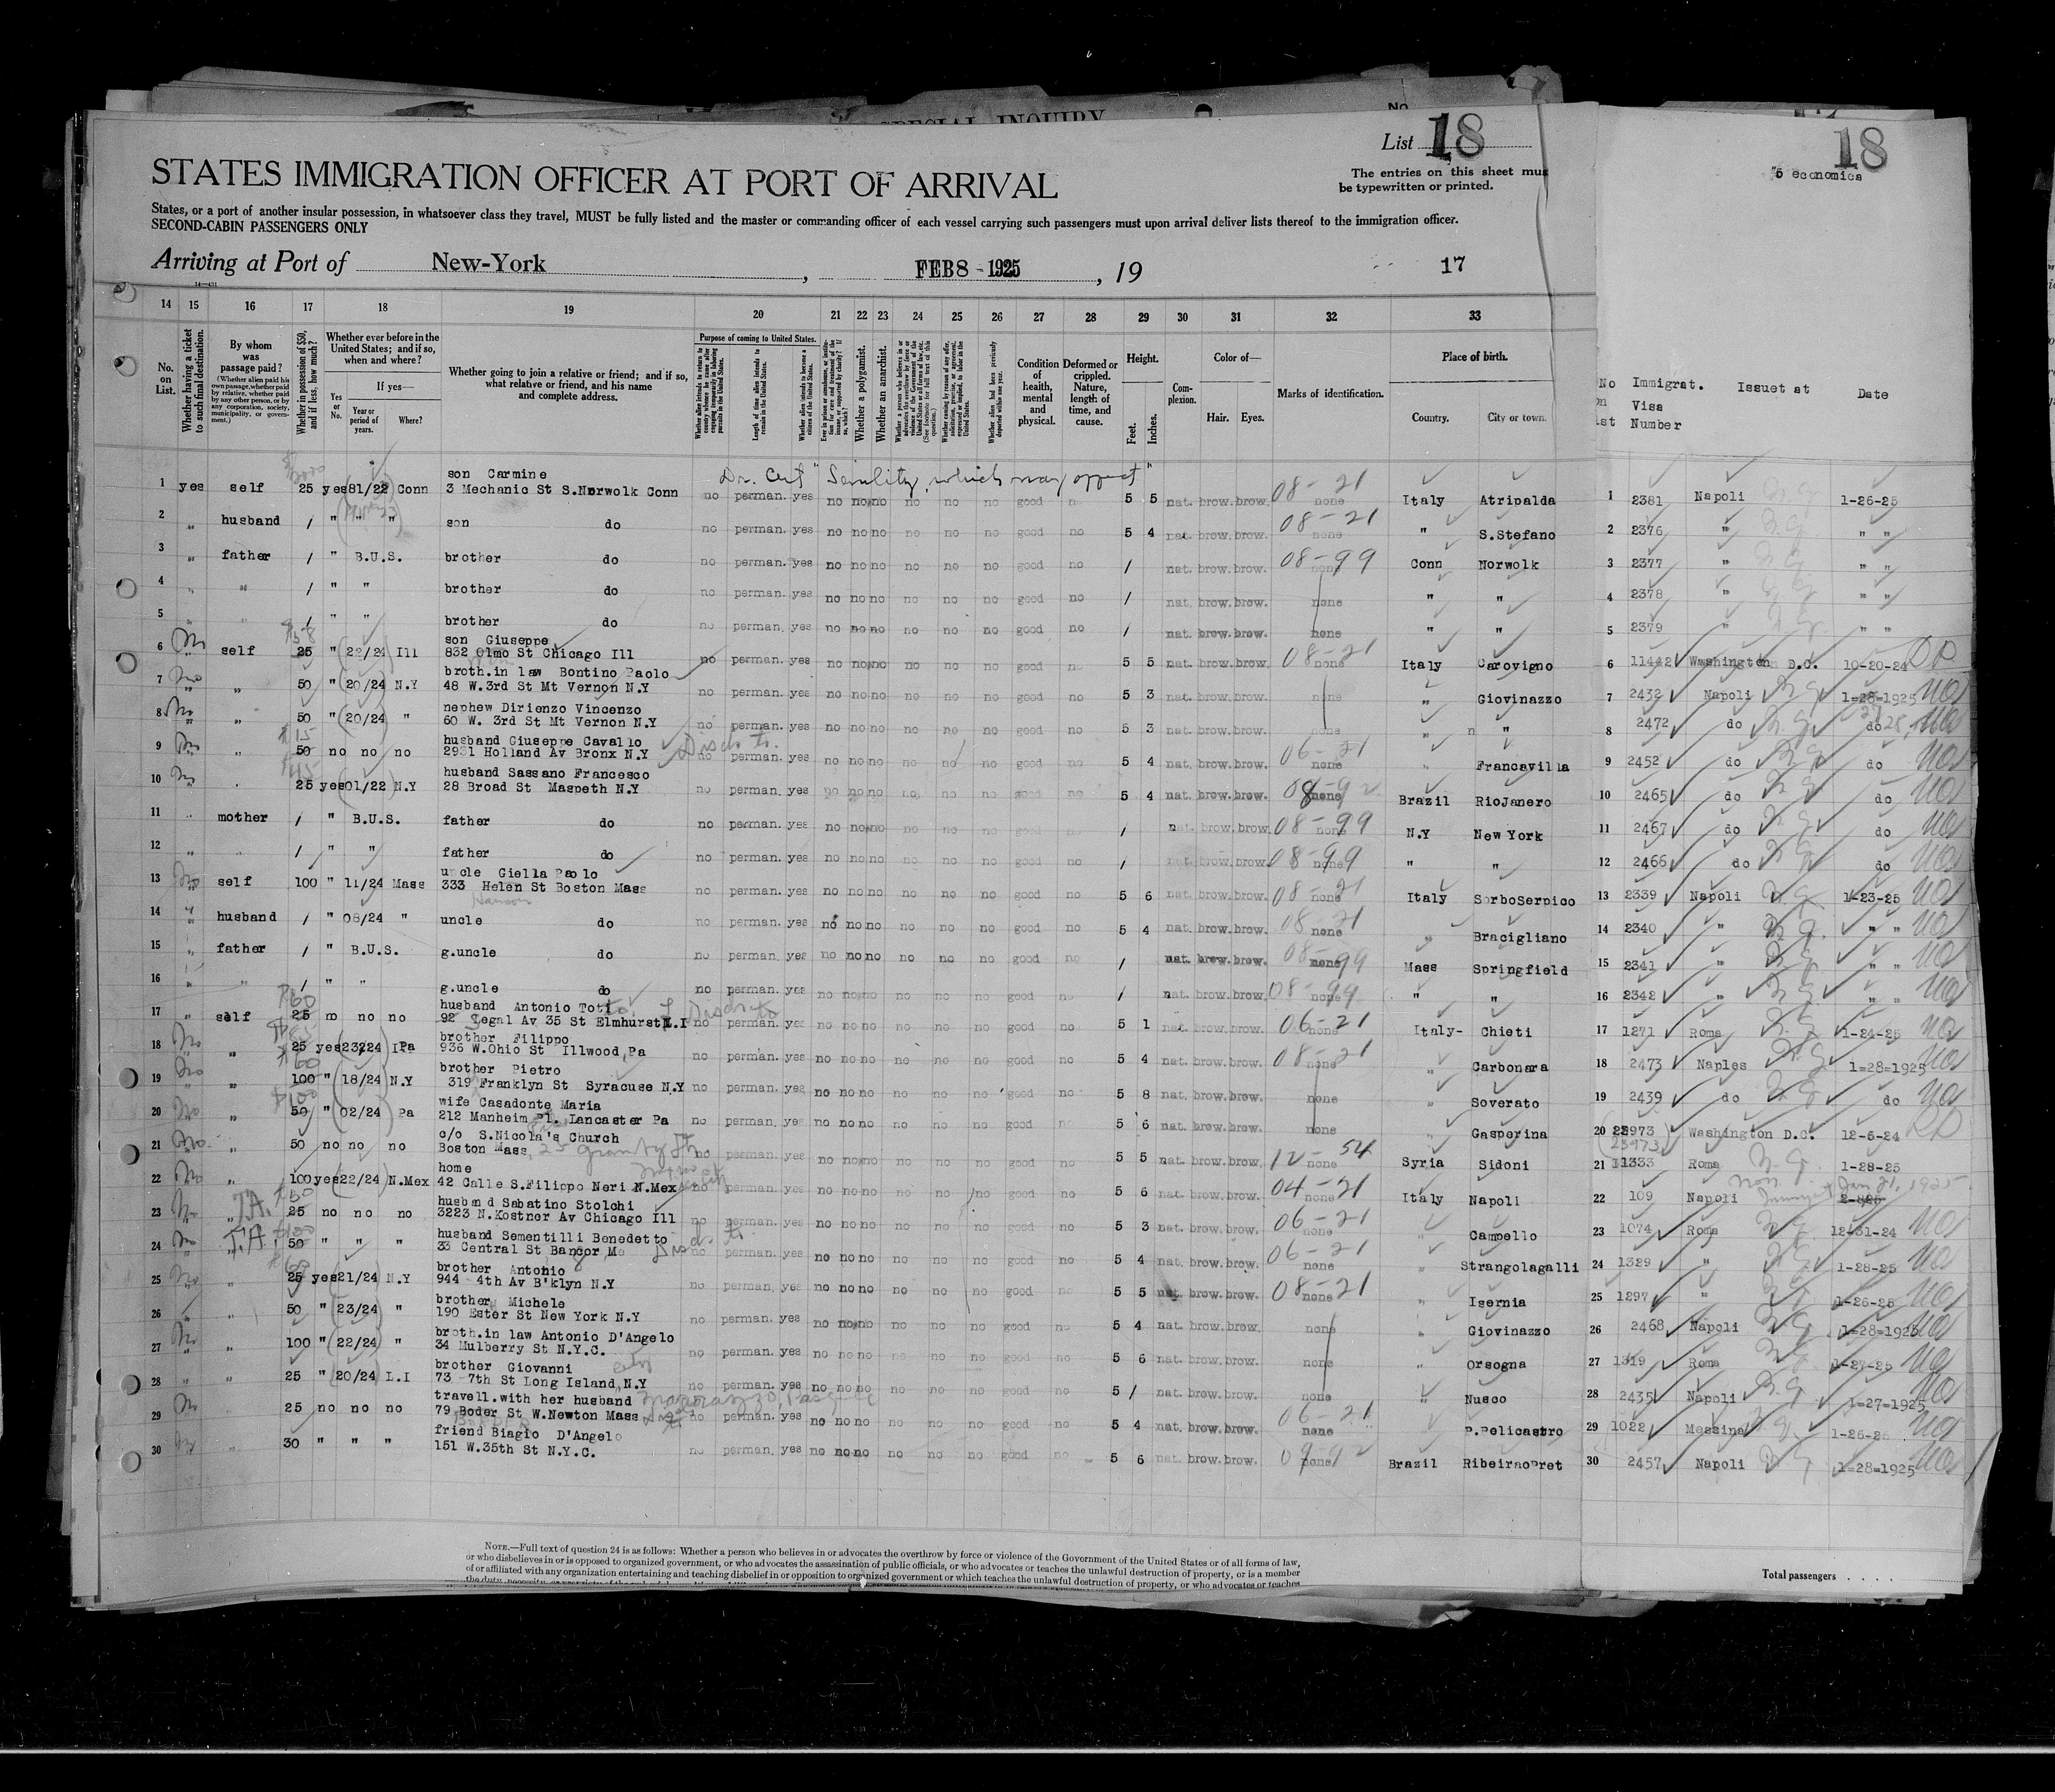 SPECIAL INQUIRY
No
List 18
18
"5 economics
The entries on this sheet mus
be typewritten or printed.
STATES IMMIGRATION OFFICER AT PORT OF ARRIVAL
States, or a port of another insular possession, in whatsoever class they travel, MUST be fully listed and the master or commanding officer of each vessel carrying such passengers must upon arrival deliver lists thereof to the immigration officer.
SECOND-CABIN PASSENGERS ONLY
Arriving at Port of New-York, FEB 8 - 1925, 19 17
14 15 16 17 18 19 20 21 22 23 24 25 26 27 28 29 30 31 32 33
No. on List.
Whether having a ticket to such final destination.
By whom was passage paid?
(Whether alien paid his own passage, whether paid by relative, whether paid by any other person, or by any corporation, society, municipality, or government.)
Whether in possession of $50, and if less, how much?
Whether ever before in the United States; and if so, when and where?
If yes—
Yes or No.
Year or period of years.
Where?
Whether going to join a relative or friend; and if so, what relative or friend, and his name and complete address.
Purpose of coming to United States.
Length of time alien intends to remain in the United States.
Whether alien intends to become a citizen of the United States.
Whether a polygamist.
Whether an anarchist.
Condition of health, mental and physical.
Deformed or crippled. Nature, length of time, and cause.
Height.
Feet. Inches.
Complexion.
Color of—
Hair. Eyes.
Marks of identification.
Place of birth.
Country. City or town.
No on ist
Immigrat. Visa Number
Issuet at
Date
Dr. Cert "Senility, which may affect"
1 yes self 25 yes 81/22 Conn son Carmine 3 Mechanic St S.Norwolk Conn no perman. yes no no no no no no good 5 5 nat. brow. brow. 08-21 none Italy Atripalda 1 2381 Napoli 1-26-25
2 " husband / " " " son do no perman. yes no no no no no no good no 5 4 nat. brow. brow. 08-21 none " S.Stefano 2 2376 " " "
3 " father / " B.U.S. brother do no perman. yes no no no no no no good no / nat. brow. brow. 08-99 none Conn Norwolk 3 2377 " " "
4 " " / " " brother do no perman. yes no no no no no no good no / nat. brow. brow. none " " 4 2378 " " "
5 " " / " " brother do no perman. yes no no no no no no good no / nat. brow. brow. none " " 5 2379 " " "
6 No self 25 " 22/24 Ill son Giuseppe 832 Olmo St Chicago Ill no perman. yes no no no no no no good no 5 5 nat. brow. brow. 08-21 none Italy Carovigno 6 11442 Washington D.C. 10-20-24
7 No " 50 " 20/24 N.Y broth.in law Bontino Paolo 48 W.3rd St Mt Vernon N.Y no perman. yes no no no no no no good no 5 3 nat. brow. brow. none " Giovinazzo 7 2432 Napoli 1=28=1925
8 No " 50 " (20/24) " nephew Dirienzo Vincenzo 60 W. 3rd St Mt Vernon N.Y no perman. yes no no no no no no good no 5 3 nat. brow. brow. none " " 8 2472 do do 28
9 No " 50 no no no husband Giuseppe Cavallo 2951 Holland Av Bronx N.Y no perman. yes no no no no no no good no 5 4 nat. brow. brow. 06-21 none " Francavilla 9 2452 do do
10 No 25 yes 01/22 N.Y husband Sassano Francesco 28 Broad St Maspeth N.Y no perman. yes no no no no no no good no 5 4 nat. brow. brow. none Brazil RioJanero 10 2465 do do
11 " mother / " B.U.S. father do no perman. yes no no no no no no good no / nat. brow. brow. 08-99 none N.Y New York 11 2467 do do
12 " " / " " father do no perman. yes no no no no no no good no / nat. brow. brow. 08-99 none " " 12 2466 do do
13 No self 100 " 11/24 Mass uncle Giella Paolo 333 Helen St Boston Mass no perman. yes no no no no no no good no 5 6 nat. brow. brow. 08-21 none Italy SorboSerpico 13 2339 Napoli 1-23-25
14 " husband / " 08/24 " uncle do no perman. yes no no no no no no good no 5 4 nat. brow. brow. 08-21 none " Bracigliano 14 2340 " " "
15 " father / " B.U.S. g.uncle do no perman. yes no no no no no no good no / nat. brow. brow. 08-99 none Mass Springfield 15 2341 " " "
16 " " / " " g.uncle do no perman. yes no no no no no no good no / nat. brow. brow. 08-99 none " " 16 2342 " " "
17 " self 25 no no no husband Antonio Toti 92 Segal Av 35 St Elmhurst L.I no perman. yes no no no no no no good no 5 1 nat. brow. brow. 06-21 none Italy- Chieti 17 1271 Roma 1-24-25
18 No " 25 yes 23224 Pa brother Filippo 936 W.Ohio St Illwood, Pa no perman. yes no no no no no no good no 5 4 nat. brow. brow. 08-21 none " Carbonara 18 2473 Naples 1=28=1925
19 No " 100 " 18/24 N.Y brother Pietro 319 Franklyn St Syracuse N.Y no perman. yes no no no no no no good no 5 8 nat. brow. brow. none " Soverato 19 2439 do do
20 No " 50 " 02/24 Pa wife Casadonte Maria 212 Manheim Pl. Lancaster Pa no perman. yes no no no no no no good no 5 6 nat. brow. brow. none " Gasperina 20 23973 Washington D.C. 12-5-24
21 No " 50 no no no c/o S.Nicola's Church Boston Mass, no perman. yes no no no no no no good no 5 5 nat. brow. brow. 12-54 none Syria Sidoni 21 1333 Roma 1-28-25
22 No " 100 yes (22/24) N.Mex home 42 Calle S.Filippo Neri N.Mex no perman. yes no no no no no no good no 5 6 nat. brow. brow. 04-21 none Italy Napoli 22 109 Napoli Jan 21, 1925
23 No T.A. " 25 no no no husband Sabatino Stolchi 3223 N.Kostner Av Chicago Ill no perman. yes no no no no no no good no 5 3 nat. brow. brow. 06-21 none " Campello 23 1074 Roma 12-31-24
24 No T.A. " 50 " " " husband Sementilli Benedetto 33 Central St Bangor Me no perman. yes no no no no no no good no 5 4 nat. brow. brow. 06-21 none " Strangolagalli 24 1329 " 1-28-25
25 No " 25 yes 21/24 N.Y brother Antonio 944 4th Av B'klyn N.Y no perman. yes no no no no no no good no 5 5 nat. brow. brow. 08-21 none " Isernia 25 1297 " 1-26-25
26 " " 50 " 23/24 " brother Michele 190 Ester St New York N.Y no perman. yes no no no no no no good no 5 4 nat. brow. brow. none " Giovinazzo 26 2468 Napoli 1=28=1925
27 No " 100 " 22/24 " broth.in law Antonio D'Angelo 34 Mulberry St N.Y.C. no perman. yes no no no no no no good no 5 6 nat. brow. brow. none " Orsogna 27 1319 Roma 1-27-25
28 " " 25 " 20/24 L.I brother Giovanni 73 -7th St Long Island, N.Y no perman. yes no no no no no no good no 5 / nat. brow. brow. none " Nusco 28 2435 Napoli 1=27=1925
29 No " 25 no no no travell.with her husband 79 Boder St W.Newton Mass no perman. yes no no no no no no good no 5 4 nat. brow. brow. 06-21 none P.Pelicastro 29 1022 Messina 1-25-25
30 " 30 " " " friend Biagio D'Angelo 151 W.35th St N.Y.C. no perman. yes no no no no no no good no 5 6 nat. brow. brow. none Brazil RibeiraoPret 30 2457 Napoli 1=28=1925
NOTE.—Full text of question 24 is as follows: Whether a person who believes in or advocates the overthrow by force or violence of the Government of the United States or of all forms of law,
or who disbelieves in or is opposed to organized government, or who advocates the assassination of public officials, or who advocates or teaches the unlawful destruction of property, or is a member
of or affiliated with any organization entertaining and teaching disbelief in or opposition to organized government or which teaches the unlawful destruction of property, or who advocates or teaches
Total passengers . . . .